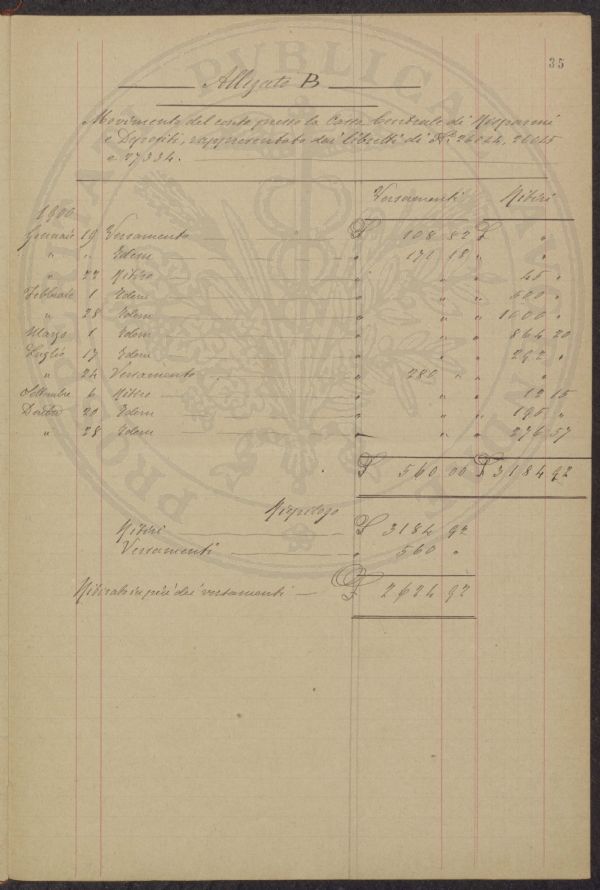 35
Allegato B
Movimento del conto presso la Cassa Centrale di Risparmi
e Depositi, rappresentato dai libretti di N.i 26044, 26045
e 27334.
Versamenti Ritiri
1900
Gennaio 19 Versamento £ 108 82 £ "
" " Idem " 171 18 " "
" 22 Ritiro " " " 45 "
Febbraio 1 Idem " " " "
" 28 Idem " " " 1000 "
Marzo 1 Idem " " " 864 20
Luglio 17 Idem " " " "
" 24 Versamento " 280 " " "
Settembre 6 Ritiro " " " 12 15
20 Idem " " " "
" 28 Idem " " " 276 57
£ 560 00 £ 3184 92
Riepilogo
Ritiri £ 3184 92
Versamenti " 560 "
Ritirato in più dei versamenti — £ 2624 92